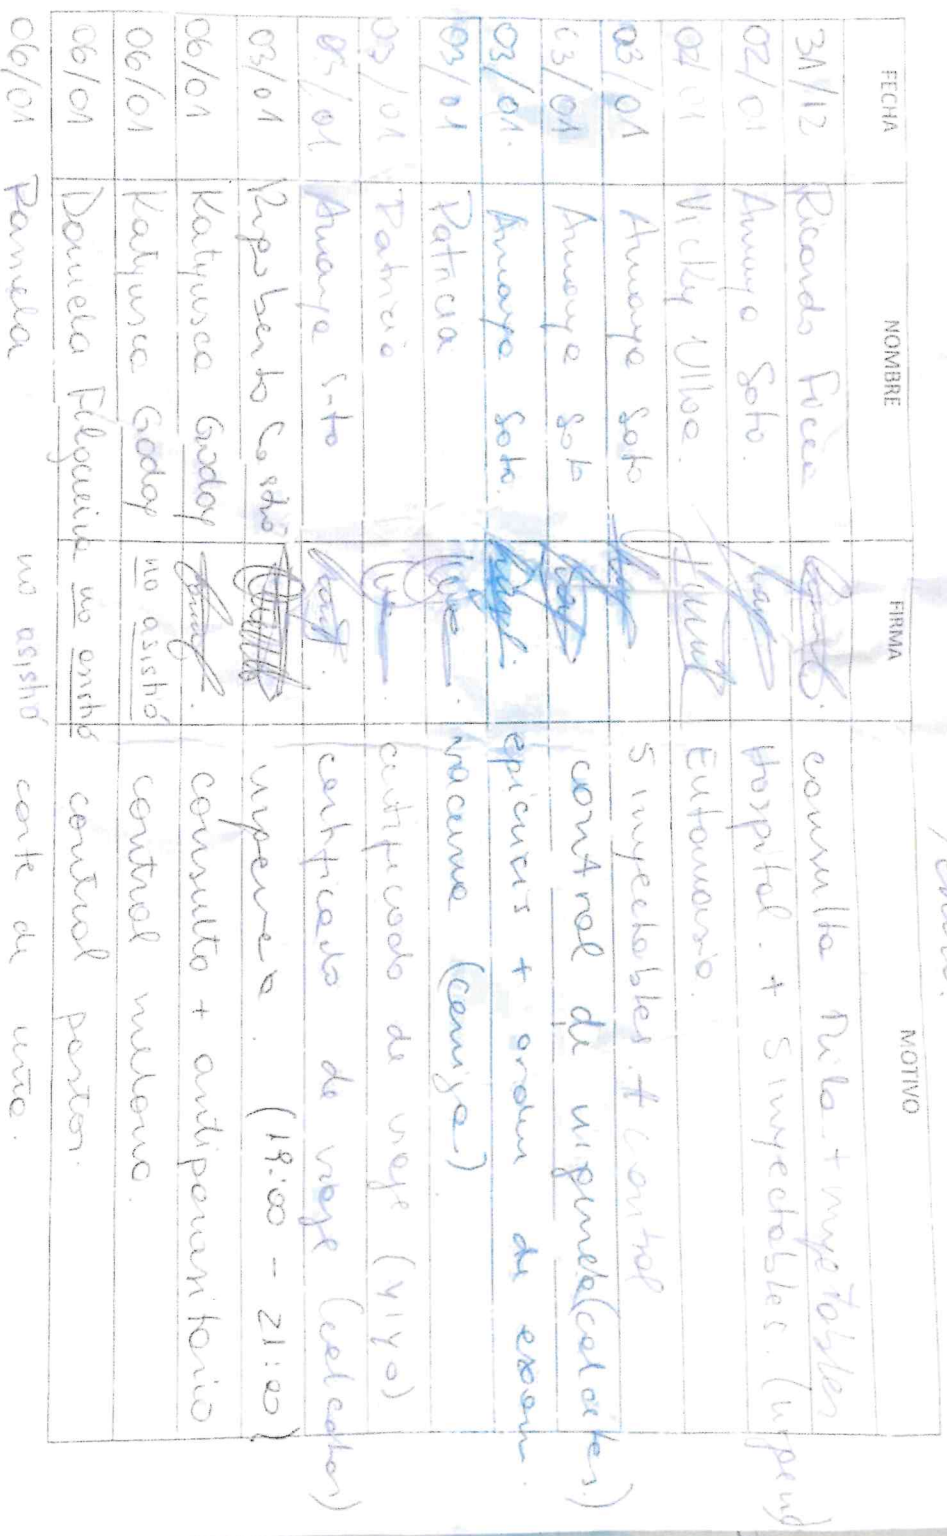 FECHA NOMBRE FIRMA MOTIVO
31/12 Ricardo consulta Mila + inyetables
02/01 Amaya Soto. Hospital. + 5 inyectables. (urgencia
02/01 Vicky Ulloa. Eutanasia.
03/01 Amaya Soto 5 inyectables + control
03/01 Amaya Soto control de urgencia (calcates.)
03/01. Amaya Soto. epicrisis + orden de exam.
03/01 Patricia vacuna (ceniza)
03/01 Patricia certificado de viaje (yiyo)
03/01 Amaya Soto certificado de viaje (calcates)
03/01 Rigoberto Castro urgencia. (19:00 - 21:00)
06/01 Katyusca Godoy consulta + antiparasitario
06/01 Katyusca Godoy no asistió control
06/01 Daniela Filgueira no asistió control postor.
06/01 Pamela no asistió corte de uña.